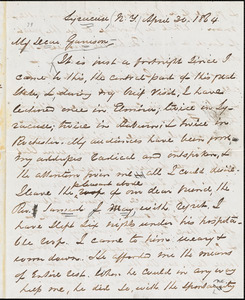 Syracuse, N.Y., April 20, 1864.
My Dear Garrison:
It is just a fortnight since I
came to this, the central part of this great
State, & during my brief visit, I have
lectured once in Elmira, twice in Sy-
racuse, twice in Auburn, & twice in
Rochester. My audiences have been good,
my addresses radical and outspoken, &
the attention given me all I could desire.
I leave the pleasant home of our dear friend, the
Rev. Samuel J. May, with regret. I
have slept six nights under his hospita-
ble roof. I came to him weary &
worn down. He afforded me the means
of entire rest. When he could in any way
help me, he did so, with the spontaneity